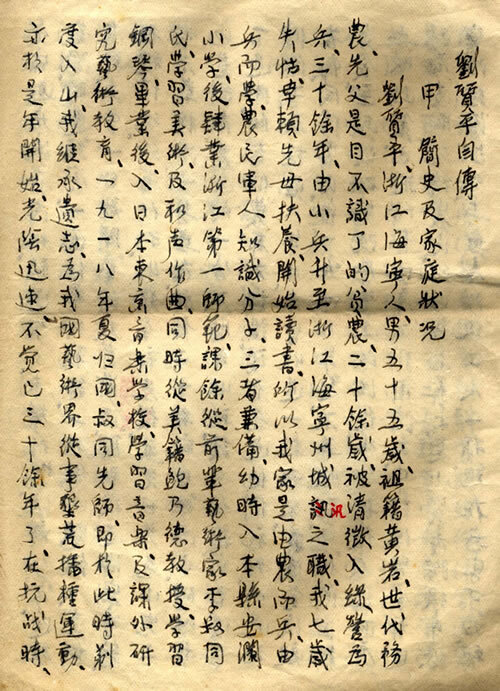 劉質平自傳
甲　簡史及家庭狀況
劉質平、浙江海寧人、男、五十五歲、祖籍黃岩、世代務
農、先父是目不識丁的貧農、二十餘歲、被清徵入綠營為
兵三十餘年、由小兵升至浙江海寧州城訊汛之職、我七歲
失怙、幸賴先母扶養、開始讀書、所以我家是由農而兵、由
兵而學、農民軍人知識分子、三者兼備、幼時入本縣安瀾
小學、後肄業浙江第一師範、課餘從前輩藝術家李叔同
氏、學習美術、及和声作曲、同時從美籍鮑乃德教授、學習
鋼琴、畢業後、入日本東京音樂學校、學習音樂、及課外研
究藝術教育、一九一八年夏归國、叔同先師、即於此時剃
度入山、我繼承遺志、為我國藝術界從事墾荒播種運動、
亦於是年開始、光陰迅速、不覺已三十餘年了、在抗战時、